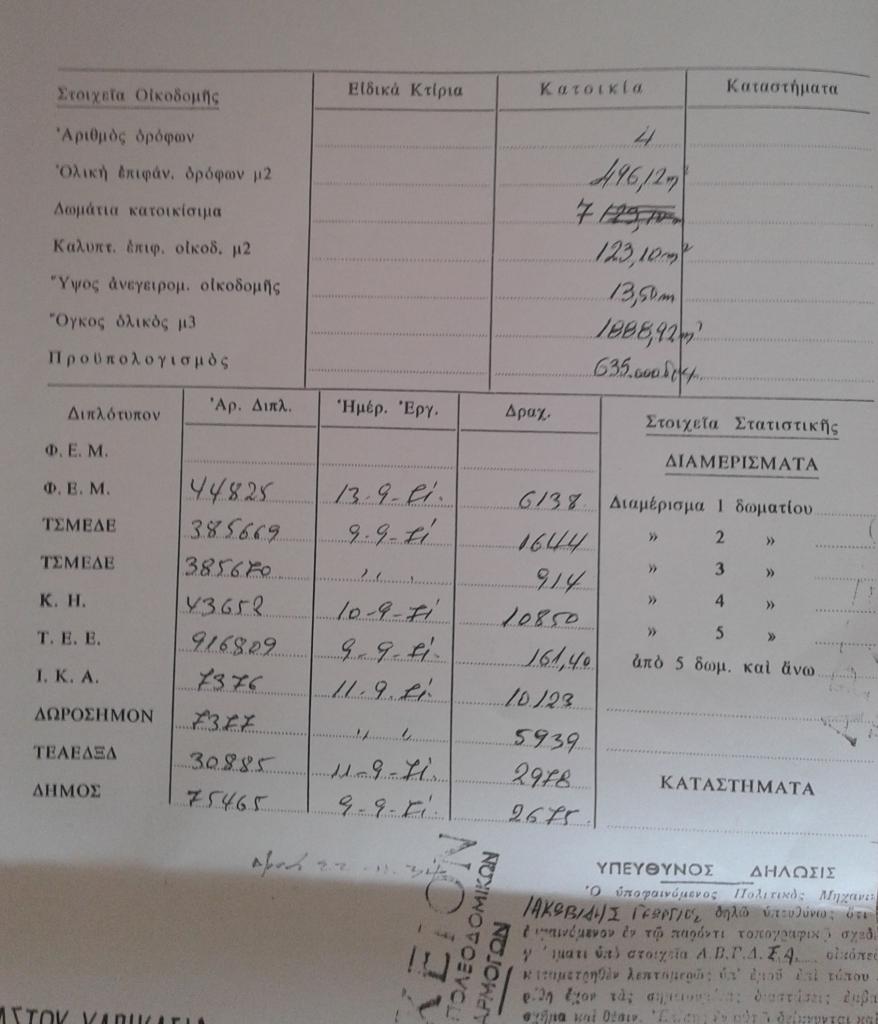 Στοιχεῖα Οἰκοδομῆς Εἰδικὰ Κτίρια Κατοικία Καταστήματα
Ἀριθμὸς ὀρόφων 4
Ὁλικὴ ἐπιφάν. ὀρόφων μ2 496,12m²
Δωμάτια κατοικίσιμα 7
Καλυπτ. ἐπιφ. οἰκοδ. μ2 123,10m²
Ὕψος ἀνεγειρομ. οἰκοδομῆς 13,50m
Ὄγκος ὁλικὸς μ3 1888,92m³
Προϋπολογισμὸς 635.000 δρχ.
Διπλότυπον Ἀρ. Διπλ. Ἡμέρ. Ἐργ. Δραχ. Στοιχεῖα Στατιστικῆς
Φ. Ε. Μ.
ΔΙΑΜΕΡΙΣΜΑΤΑ
Φ. Ε. Μ. 44825 13-9- 6138 Διαμέρισμα 1 δωματίου
ΤΣΜΕΔΕ 385669 9-9- 1644 » 2 »
ΤΣΜΕΔΕ 385670 ,, , 914 » 3 »
Κ. Η. 43652 10-9- 10850 » 4 »
Τ. Ε. Ε. 916809 9-9- 161,40 » 5 »
ἀπὸ 5 δωμ. καὶ ἄνω
Ι. Κ. Α. 7376 11-9- 10123
ΔΩΡΟΣΗΜΟΝ 7377 ,, , 5939
ΤΕΛΕΔΞΔ 30885 11-9- 2978 ΚΑΤΑΣΤΗΜΑΤΑ
ΔΗΜΟΣ 75465 9-9- 2675
ΥΠΕΥΘΥΝΟΣ ΔΗΛΩΣΙΣ
Ὁ ὑποφαινόμενος Πολιτικὸς Μηχανι
ΙΑΚΩΒΙΔΗΣ δηλῶ ὑπευθύνως ὅτι
ἐν τῷ παρόντι τοπογραφικ σχεδ
ὑπὸ στοιχεῖα Α.Β.Γ.Δ.Ξ.Α. οἰκόπε
λεπτομερῶς ὑπ' ἐμοῦ ἐπὶ τόπου
ἔχον τὰς διαστάσεις ἐμβα
σχῆμα καὶ θέσιν.
ΠΟΛΕΟΔΟΜΙΚΩΝ
ΑΡΜΟΓΩΝ